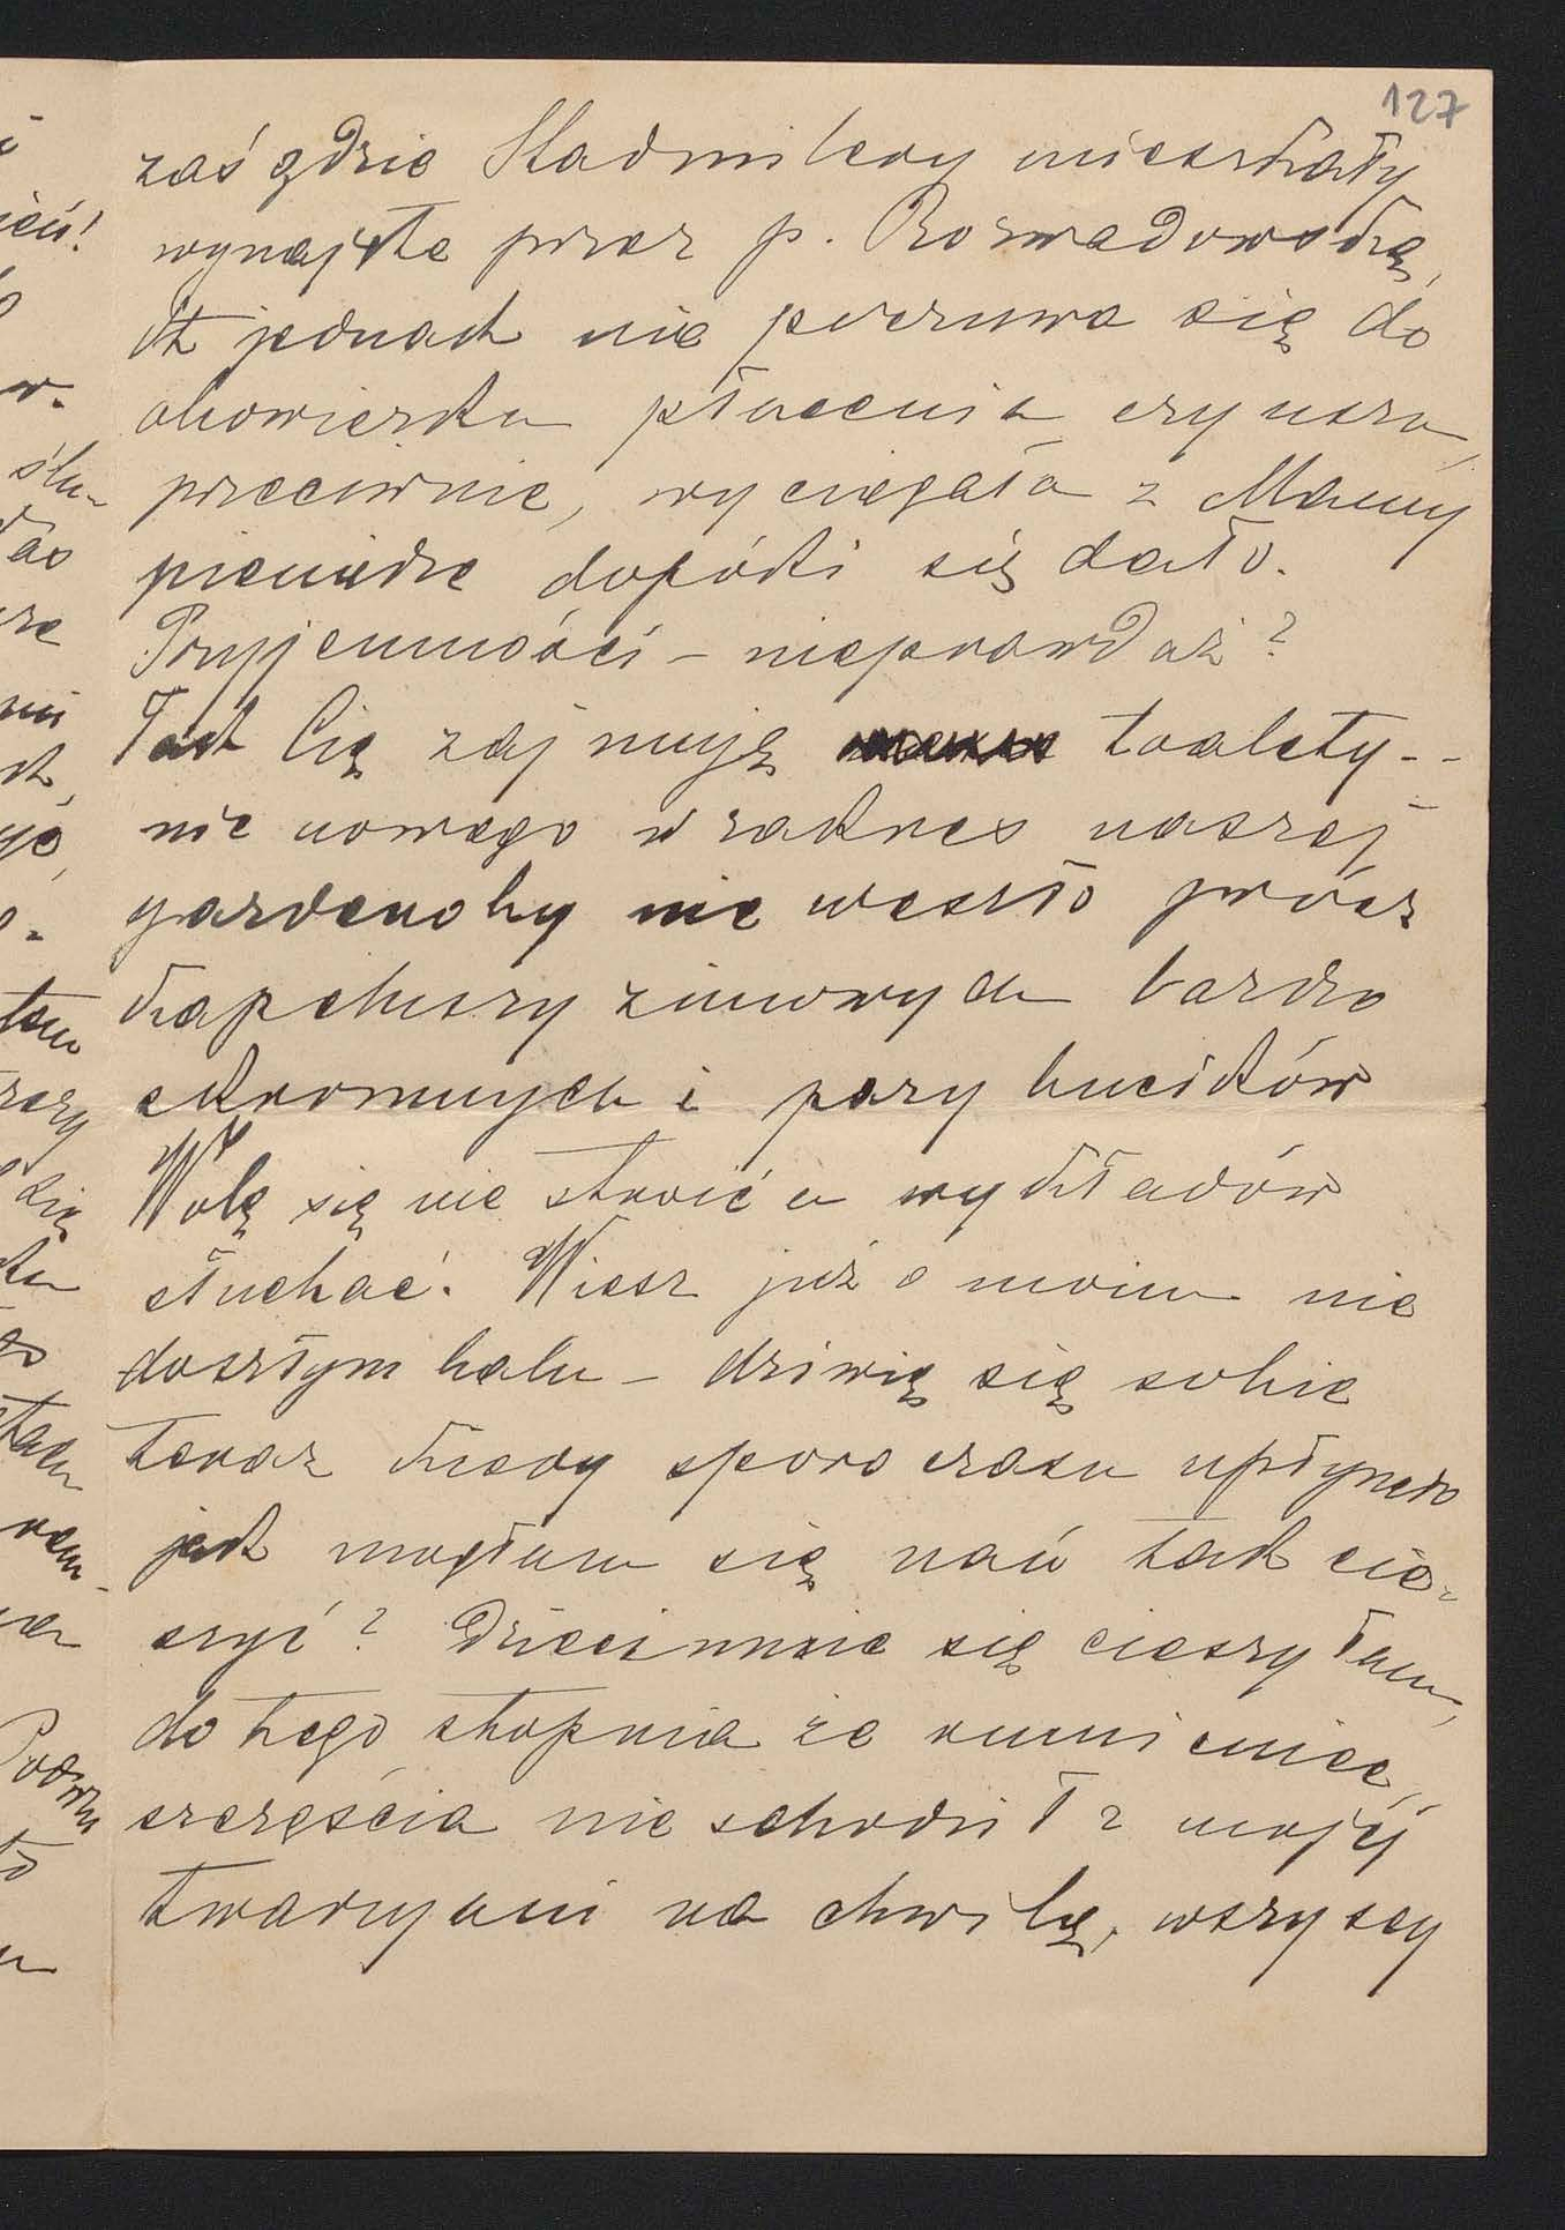 127
zaś gdzie Stadmilery mieszkały
wynajęte przez p. Rozwadowską,
ta jednak nie poczuwa się do
obowiązku płacenia czynszu,
przeciwnie, wyciągała z Mamy
pieniądze dopóki się dało.
Przyjemności – nieprawdaż?
Tak Cię zajmują toalety --
nic nowego w zakres naszej
garderoby nie weszło prócz
kapeluszy zimowych bardzo
skromnych i pary bucików
Wolę się nie stroić a wykładów
słuchać. Wiesz już o moim nie
doszłym balu – dziwię się sobie
teraz kiedy sporo czasu upłynęło
jak mogłam się nań tak cie-
szyć? Dziecinnie się cieszyłam,
do tego stopnia że rumieniec
szczęścia nie schodził z mojéj
twarzy ani na chwilę, wszyscy